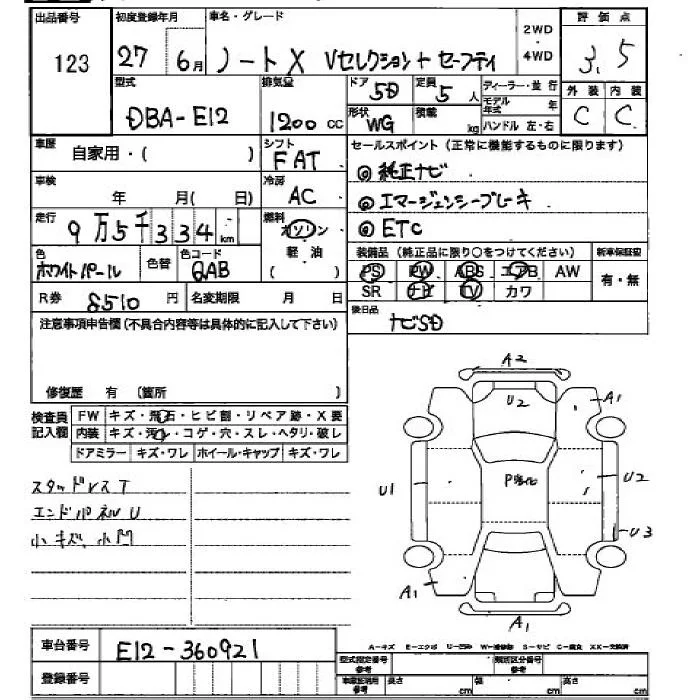 出品番号 初度登録年月 車名・グレード 2WD ・ 4WD 評価点
123 27 6月 ノートX Vセレクション+セーフティ 3.5
型式 排気量 ドア 5D 定員 5人 ディーラー・並行 外装 内装
DBA-E12 1200cc 形状 WG 積載 kg モデル年式 年 ハンドル 左・右 C C
車歴 自家用・( ) シフト FAT セールスポイント(正常に機能するものに限ります)
◎純正ナビ
車検 年 月(日) 冷房 AC ◎エマージェンシーブレーキ
走行 9万5千334km 燃料 ガソリン ◎ETC
軽油
( )
色 ホワイトパール 色替 色コード QAB 装備品(純正品に限り○をつけてください) 新車保証書
PS PW ABS エアB AW 有・無
R券 8510円 名変期限 月 日 SR ナビ TV カワ
注意事項申告欄(不具合内容等は具体的に記入して下さい) 後日品 ナビSD
修復歴 有 (箇所 )
検査員記入欄 FW キズ・飛石・ヒビ割・リペア跡・X要
内装 キズ・汚れ・コゲ・穴・スレ・ヘタリ・破レ
ドアミラー キズ・ワレ ホイール・キャップ キズ・ワレ
スタッドレスT
エンドパネルU
小キズ、小凹
A2
U2 A1
U1 U2
U3
A1
A1
車台番号 E12-360921
A-キズ E-エクボ U-凹み W-補修跡 S-サビ C-腐食 XX-交換済
登録番号 型式指定番号 参考 類別区分番号 参考
車庫証明用 参考 長さ cm 幅 cm 高さ cm